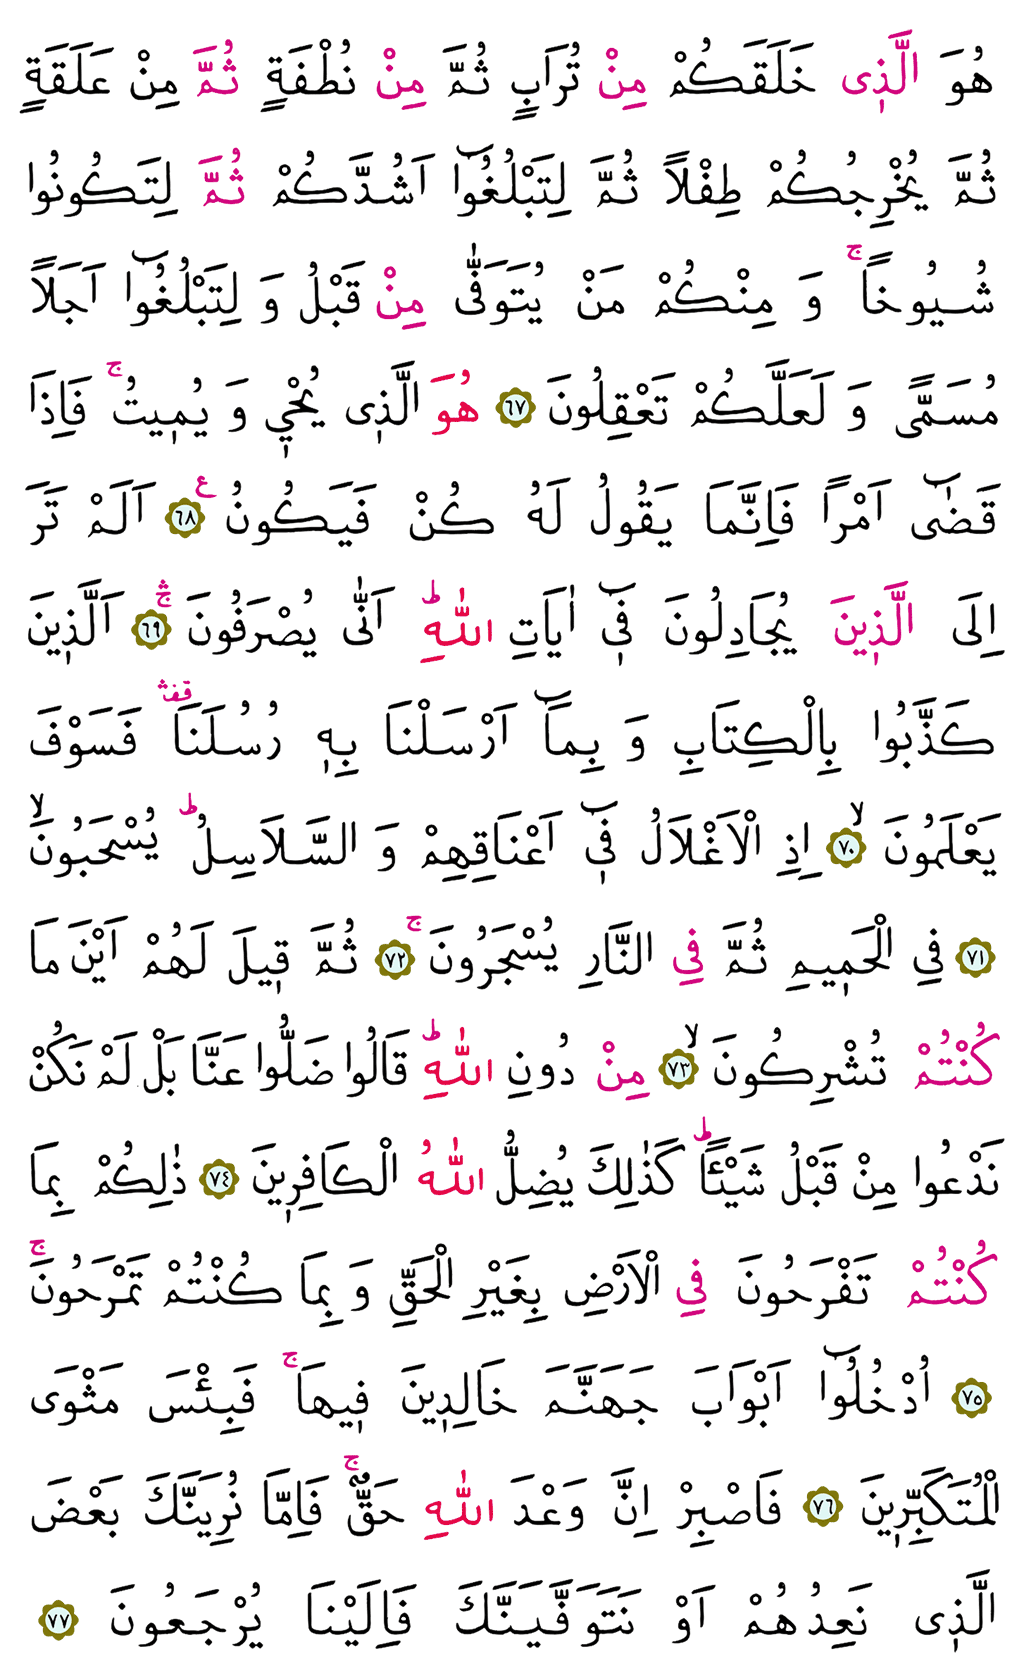 هُوَ الَّذ۪ى خَلَقَكُمْ مِنْ تُرَابٍ ثُمَّ مِنْ نُطْفَةٍ ثُمَّ مِنْ عَلَقَةٍ
ثُمَّ يُخْرِجُكُمْ طِفْلاً ثُمَّ لِتَبْلُغُٓوا اَشُدَّكُمْ ثُمَّ لِتَكُونُوا
شُيُوخاًۚ وَ مِنْكُمْ مَنْ يُتَوَفّٰى مِنْ قَبْلُ وَ لِتَبْلُغُٓوا اَجَلاً
مُسَمًّى وَ لَعَلَّكُمْ تَعْقِلُونَ ﴿٦٧﴾ هُوَ الَّذ۪ى يُحْي۪ وَ يُم۪يتُۚ فَاِذَا
قَضٰٓى اَمْراً فَاِنَّمَا يَقُولُ لَهُ كُنْ فَيَكُونُ ﴿٦٨﴾ع اَلَمْ تَرَ
اِلَى الَّذ۪ينَ يُجَادِلُونَ ف۪ٓى اٰيَاتِ اللّٰهِؕ اَنّٰى يُصْرَفُونَۚۛ ﴿٦٩﴾ اَلَّذ۪ينَ
كَذَّبُوا بِالْكِتَابِ وَ بِمَٓا اَرْسَلْنَا بِه۪ رُسُلَنَا قفۛ فَسَوْفَ
يَعْلَمُونَۙ ﴿٧٠﴾ اِذِ الْاَغْلَالُ ف۪ٓى اَعْنَاقِهِمْ وَ السَّلَاسِلُؕ يُسْحَبُونَۙ
﴿٧١﴾ فِى الْحَم۪يمِ ثُمَّ فِى النَّارِ يُسْجَرُونَۚ ﴿٧٢﴾ ثُمَّ ق۪يلَ لَهُمْ اَيْنَ مَا
كُنْتُمْ تُشْرِكُونَۙ ﴿٧٣﴾ مِنْ دُونِ اللّٰهِؕ قَالُوا ضَلُّوا عَنَّا بَلْ لَمْ نَكُنْ
نَدْعُوا مِنْ قَبْلُ شَيْـًٔاؕ كَذٰلِكَ يُضِلُّ اللّٰهُ الْكَافِر۪ينَ ﴿٧٤﴾ ذٰلِكُمْ بِمَا
كُنْتُمْ تَفْرَحُونَ فِى الْاَرْضِ بِغَيْرِ الْحَقِّ وَ بِمَا كُنْتُمْ تَمْرَحُونَۚ
﴿٧٥﴾ اُدْخُلُٓوا اَبْوَابَ جَهَنَّمَ خَالِد۪ينَ ف۪يهَاۚ فَبِئْسَ مَثْوَى
الْمُتَكَبِّر۪ينَ ﴿٧٦﴾ فَاصْبِرْ اِنَّ وَعْدَ اللّٰهِ حَقٌّۚ فَاِمَّا نُرِيَنَّكَ بَعْضَ
الَّذ۪ى نَعِدُهُمْ اَوْ نَتَوَفَّيَنَّكَ فَاِلَيْنَا يُرْجَعُونَ ﴿٧٧﴾